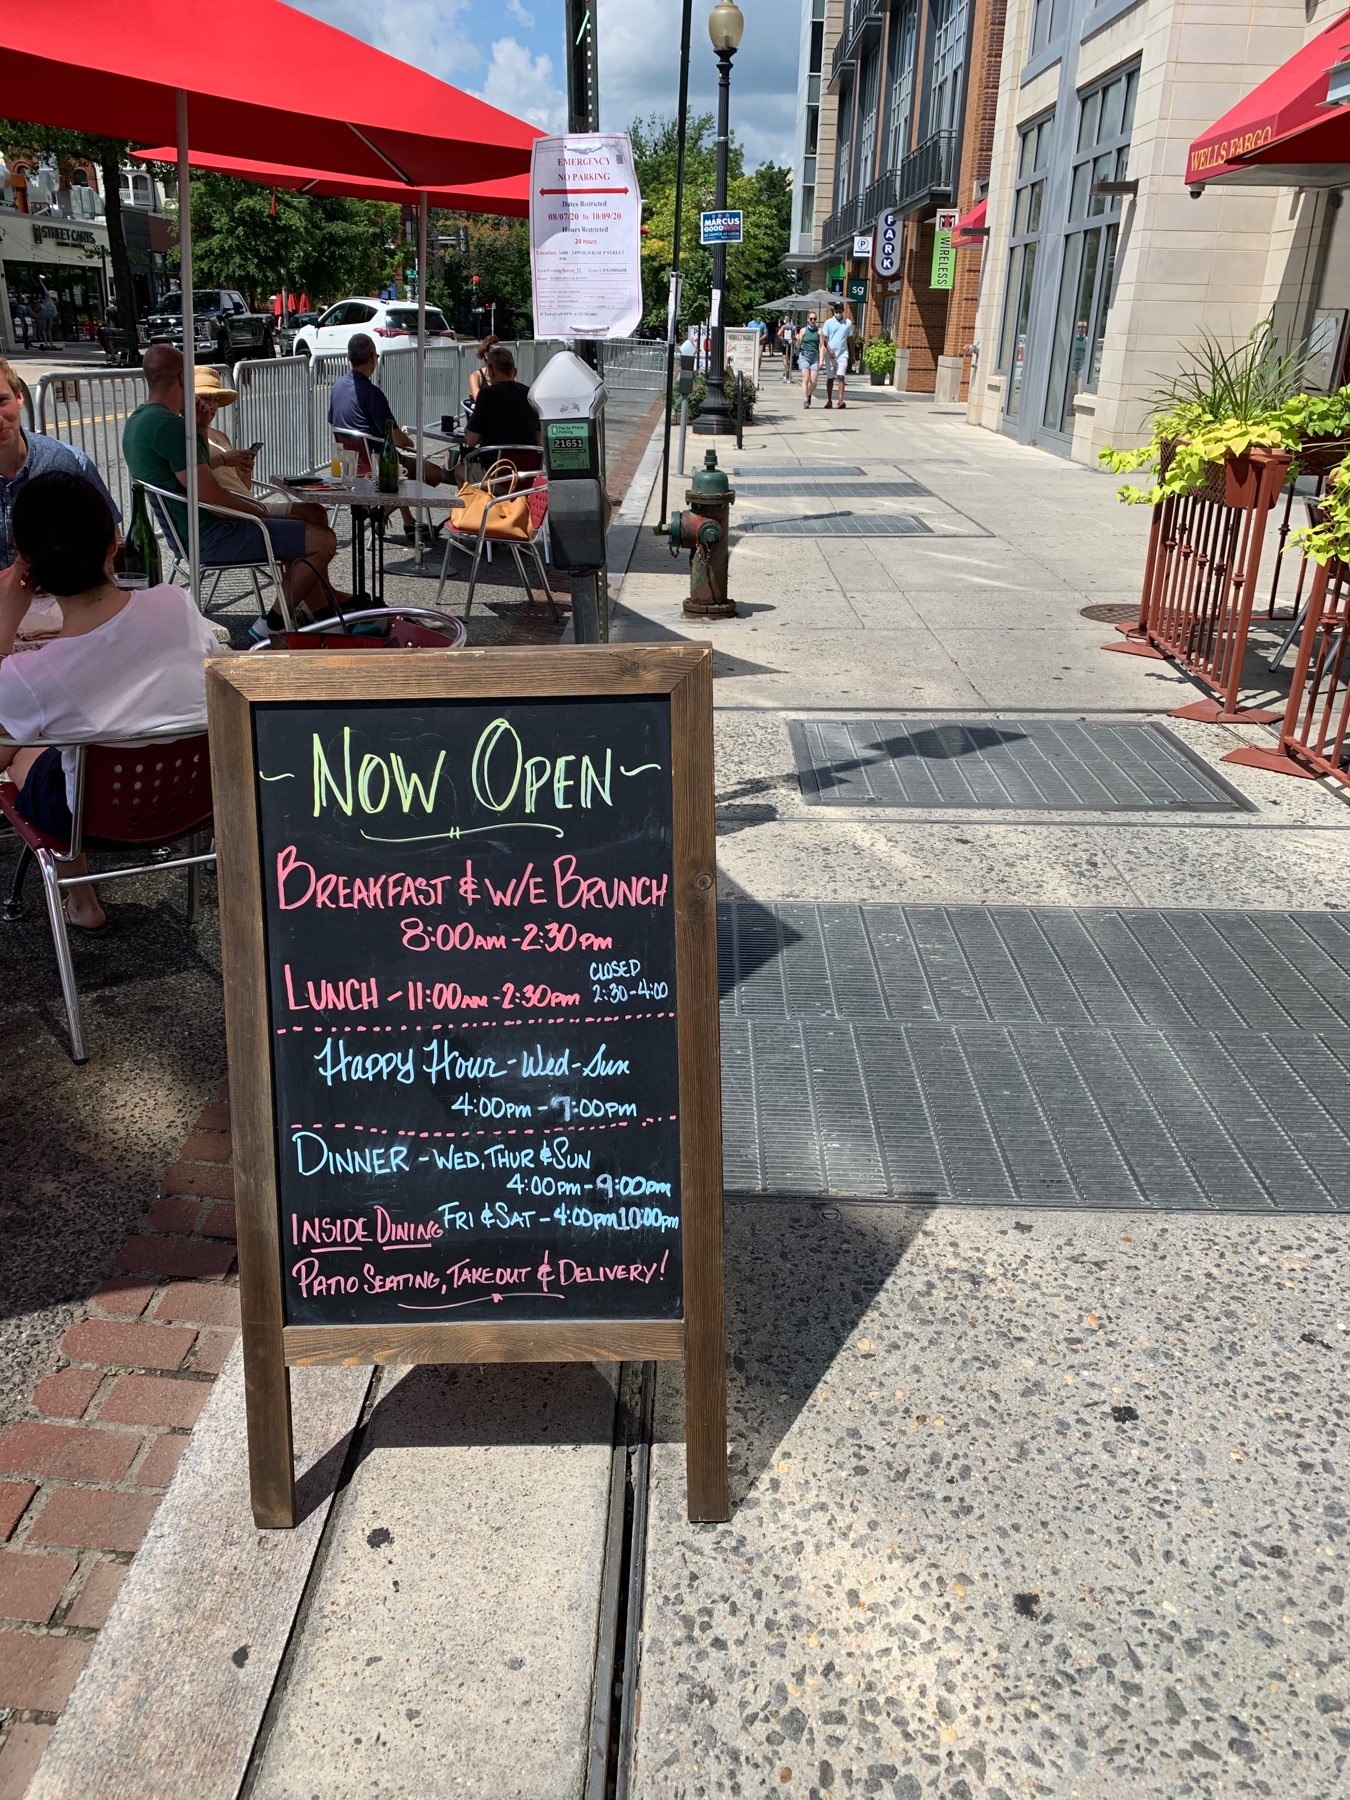 EMERGENCY
NO PARKING
Dates Restricted
08/07/20 to 10/09/20
Hours Restricted
24 Hours
MARCUS
GOODWIN
PARK
P
WIRELESS
sg
WELLS FARGO
STREET CARTS
21651
~ NOW OPEN ~
BREAKFAST & W/E BRUNCH
8:00AM - 2:30PM
CLOSED
LUNCH - 11:00AM - 2:30PM 2:30-4:00
Happy Hour - Wed - Sun
4:00PM - 7:00PM
DINNER - WED, THUR & SUN
4:00PM - 9:00PM
INSIDE DINING FRI & SAT - 4:00PM 10:00PM
PATIO SEATING, TAKEOUT & DELIVERY!